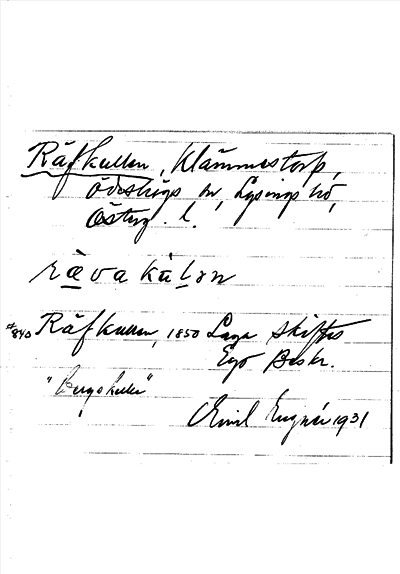 Räfkullen, Klämmestorp,
Ödeshögs sn, Lysings hd,
Österg. l.
rävakúlən
#840 Räfkullen, 1850 Laga Skiftes
Ego Beskr.
"Bergskulle"
Emil 1931